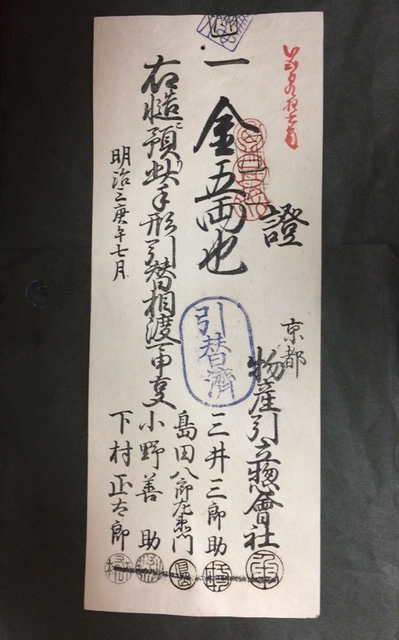 證
一金五兩也
右慥預此手形引替相渡可申事
明治三庚午七月
京都
物産引立惣會社
三井三郎助
島田八郎左衛門
小野善助
下村正太郎
引替濟